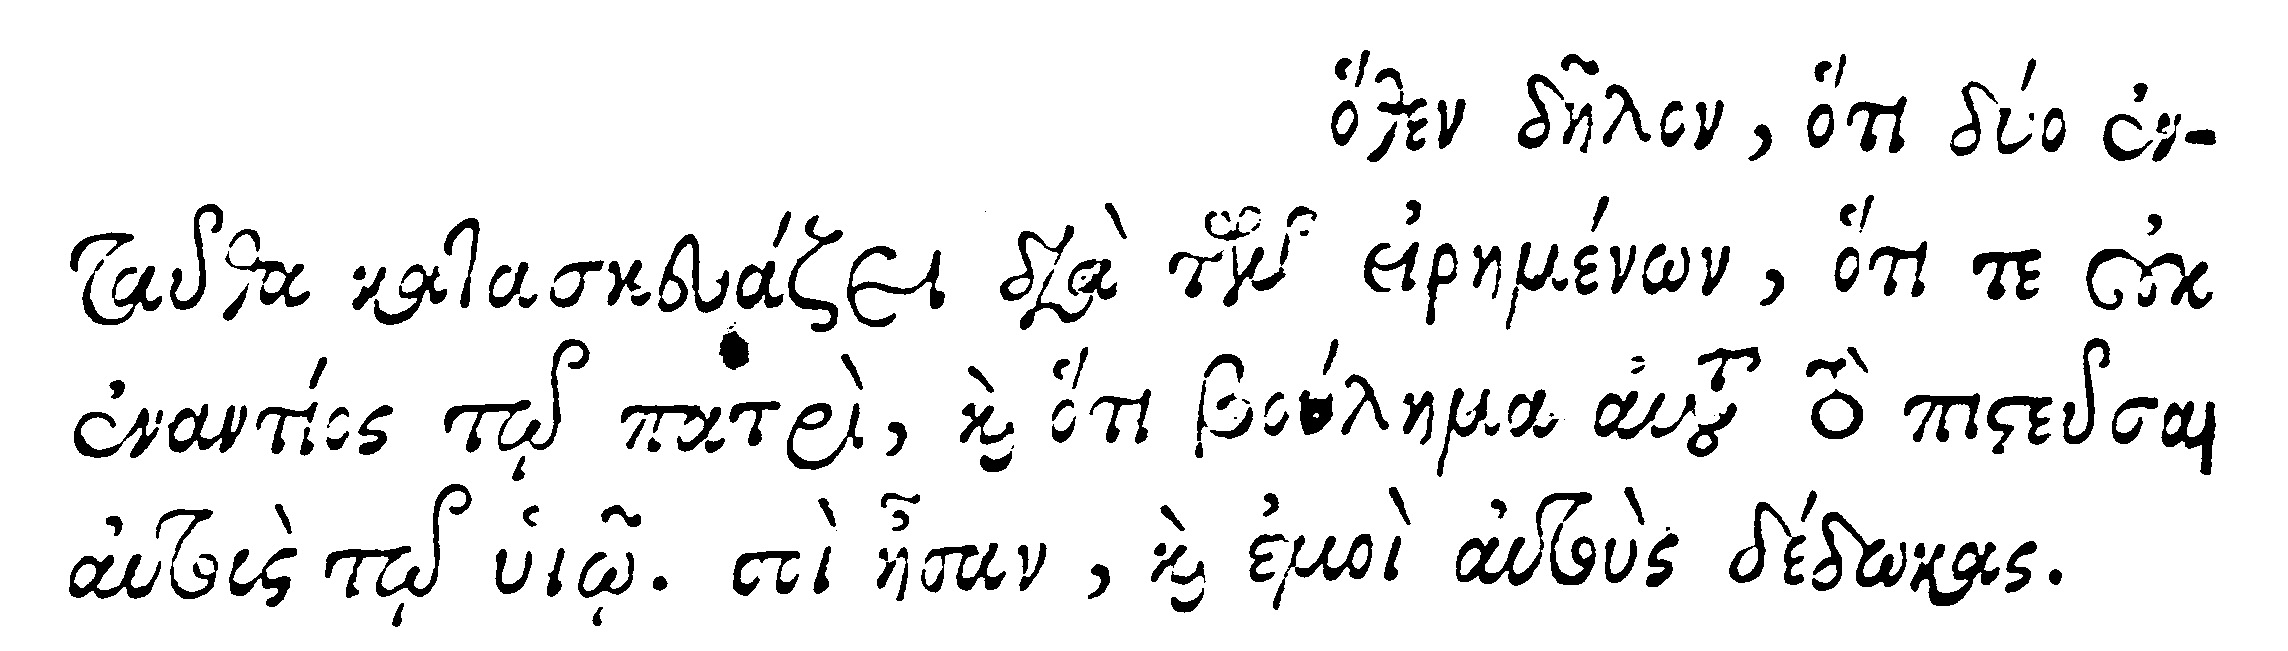 ὅθεν δῆλον, ὅτι δύο ἐν-
ταῦθα κατασκευάζει διὰ τῶν εἰρημένων, ὅτι τε οὐκ
ἐναντίος τῷ πατρὶ, καὶ ὅτι βούλημα αὐτοῦ τὸ πιστεῦσαι
αὐτοὺς τῷ υἱῷ. σοὶ ἦσαν, καὶ ἐμοὶ αὐτοὺς δέδωκας.